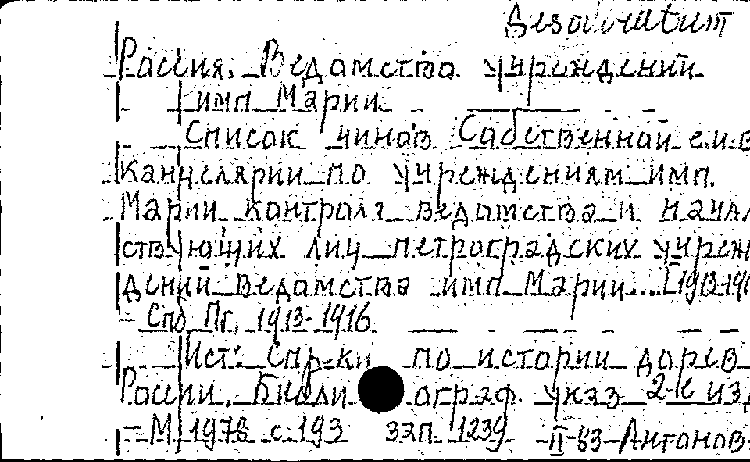 Desideratum
Россия. Ведомство учреждений
имп. Марии.
Список чинов Собственной е.и.в.
канцелярии по учреждениям имп.
Марии, контроля ведомства и началь
ствующих лиц петроградских учреж
дений Ведомства имп. Марии... [1913-191
- Спб, Пг, 1913-1916.
Ист: Спр-ки по истории дорев
России. Библиограф. указ. 2-е изд
- М, 1978 с.193 зап. 1239 II-83 Антонов